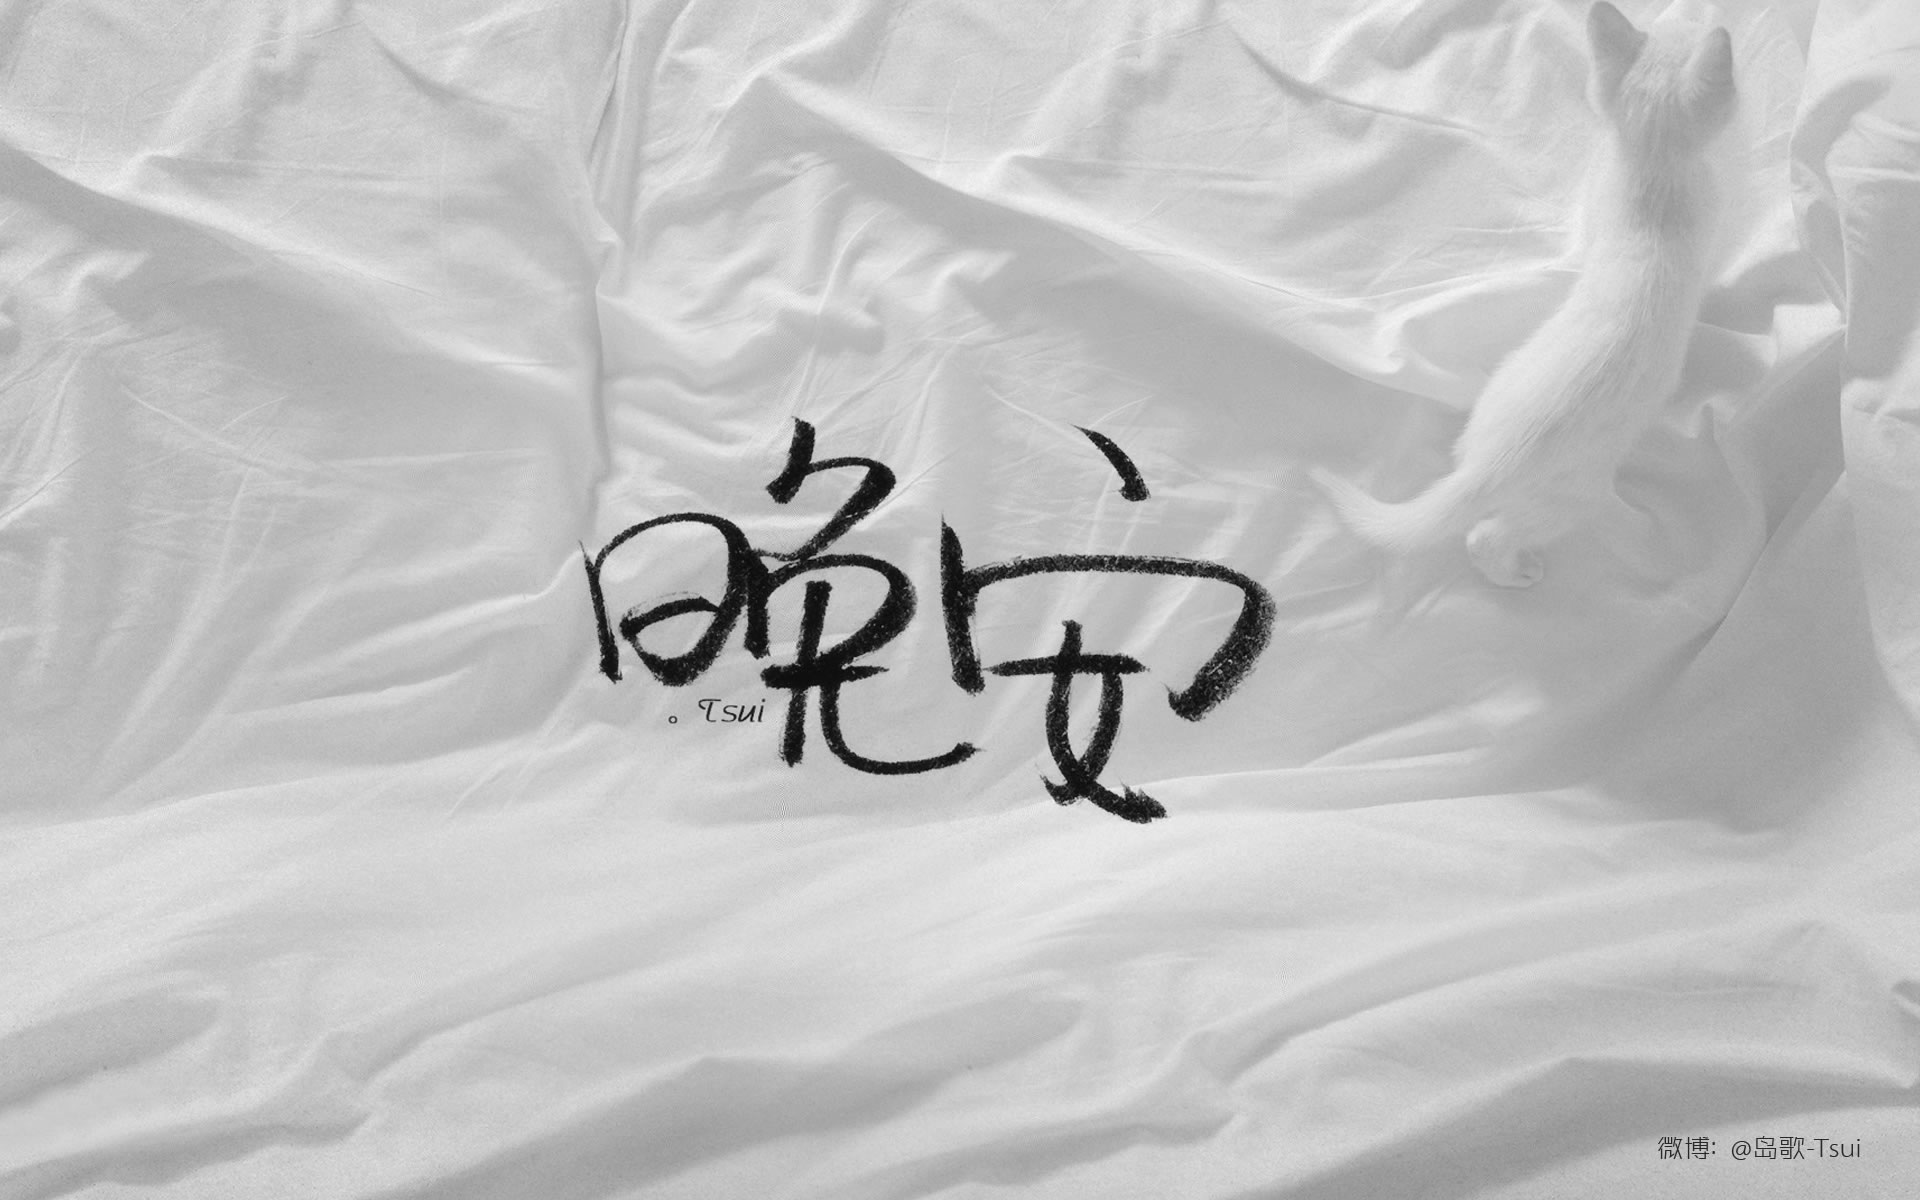 晚安
。Tsui
微博: @岛歌-Tsui